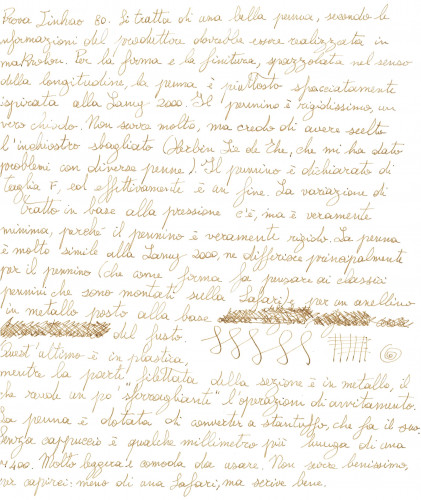 Prova Jinhao 80. Si tratta di una bella penna, secondo le
informazioni del produttore dovrebbe essere realizzata in
makrolon. Per la forma e la finitura, spazzolata nel senso
della longitudine, la penna è piuttosto spacciatamente
ispirata alla Lamy 2000. Il pennino è rigidissimo, un
vero chiodo. Non scorre molto, ma credo di avere scelto
l'inchiostro sbagliato (Herbin Lie de The, che mi ha dato
problemi con diverse penne). Il pennino è dichiarato di
taglia F, ed effettivamente è un fine. La variazione di
tratto in base alla pressione c'è, ma è veramente
minima, perché il pennino è veramente rigido. La penna
è molto simile alla Lamy 2000, ne differisce principalmente
per il pennino (che come forma fa pensare ai classici
pennini che sono montati sulla Safari), per un anellino
in metallo posto alla base
del fusto.
Quest'ultimo è in plastica
mentre la parte filettata della sezione è in metallo, il
che rende un po' "sferragliante" l'operazioni di avvitamento.
La penna è dotata di converter a stantuffo, che fa il suo.
Senza cappuccio è qualche millimetro più lunga di una
M400. Molto leggera e comoda da usare. Non scorre benissimo,
per capirci: meno di una Safari, ma scrive bene.